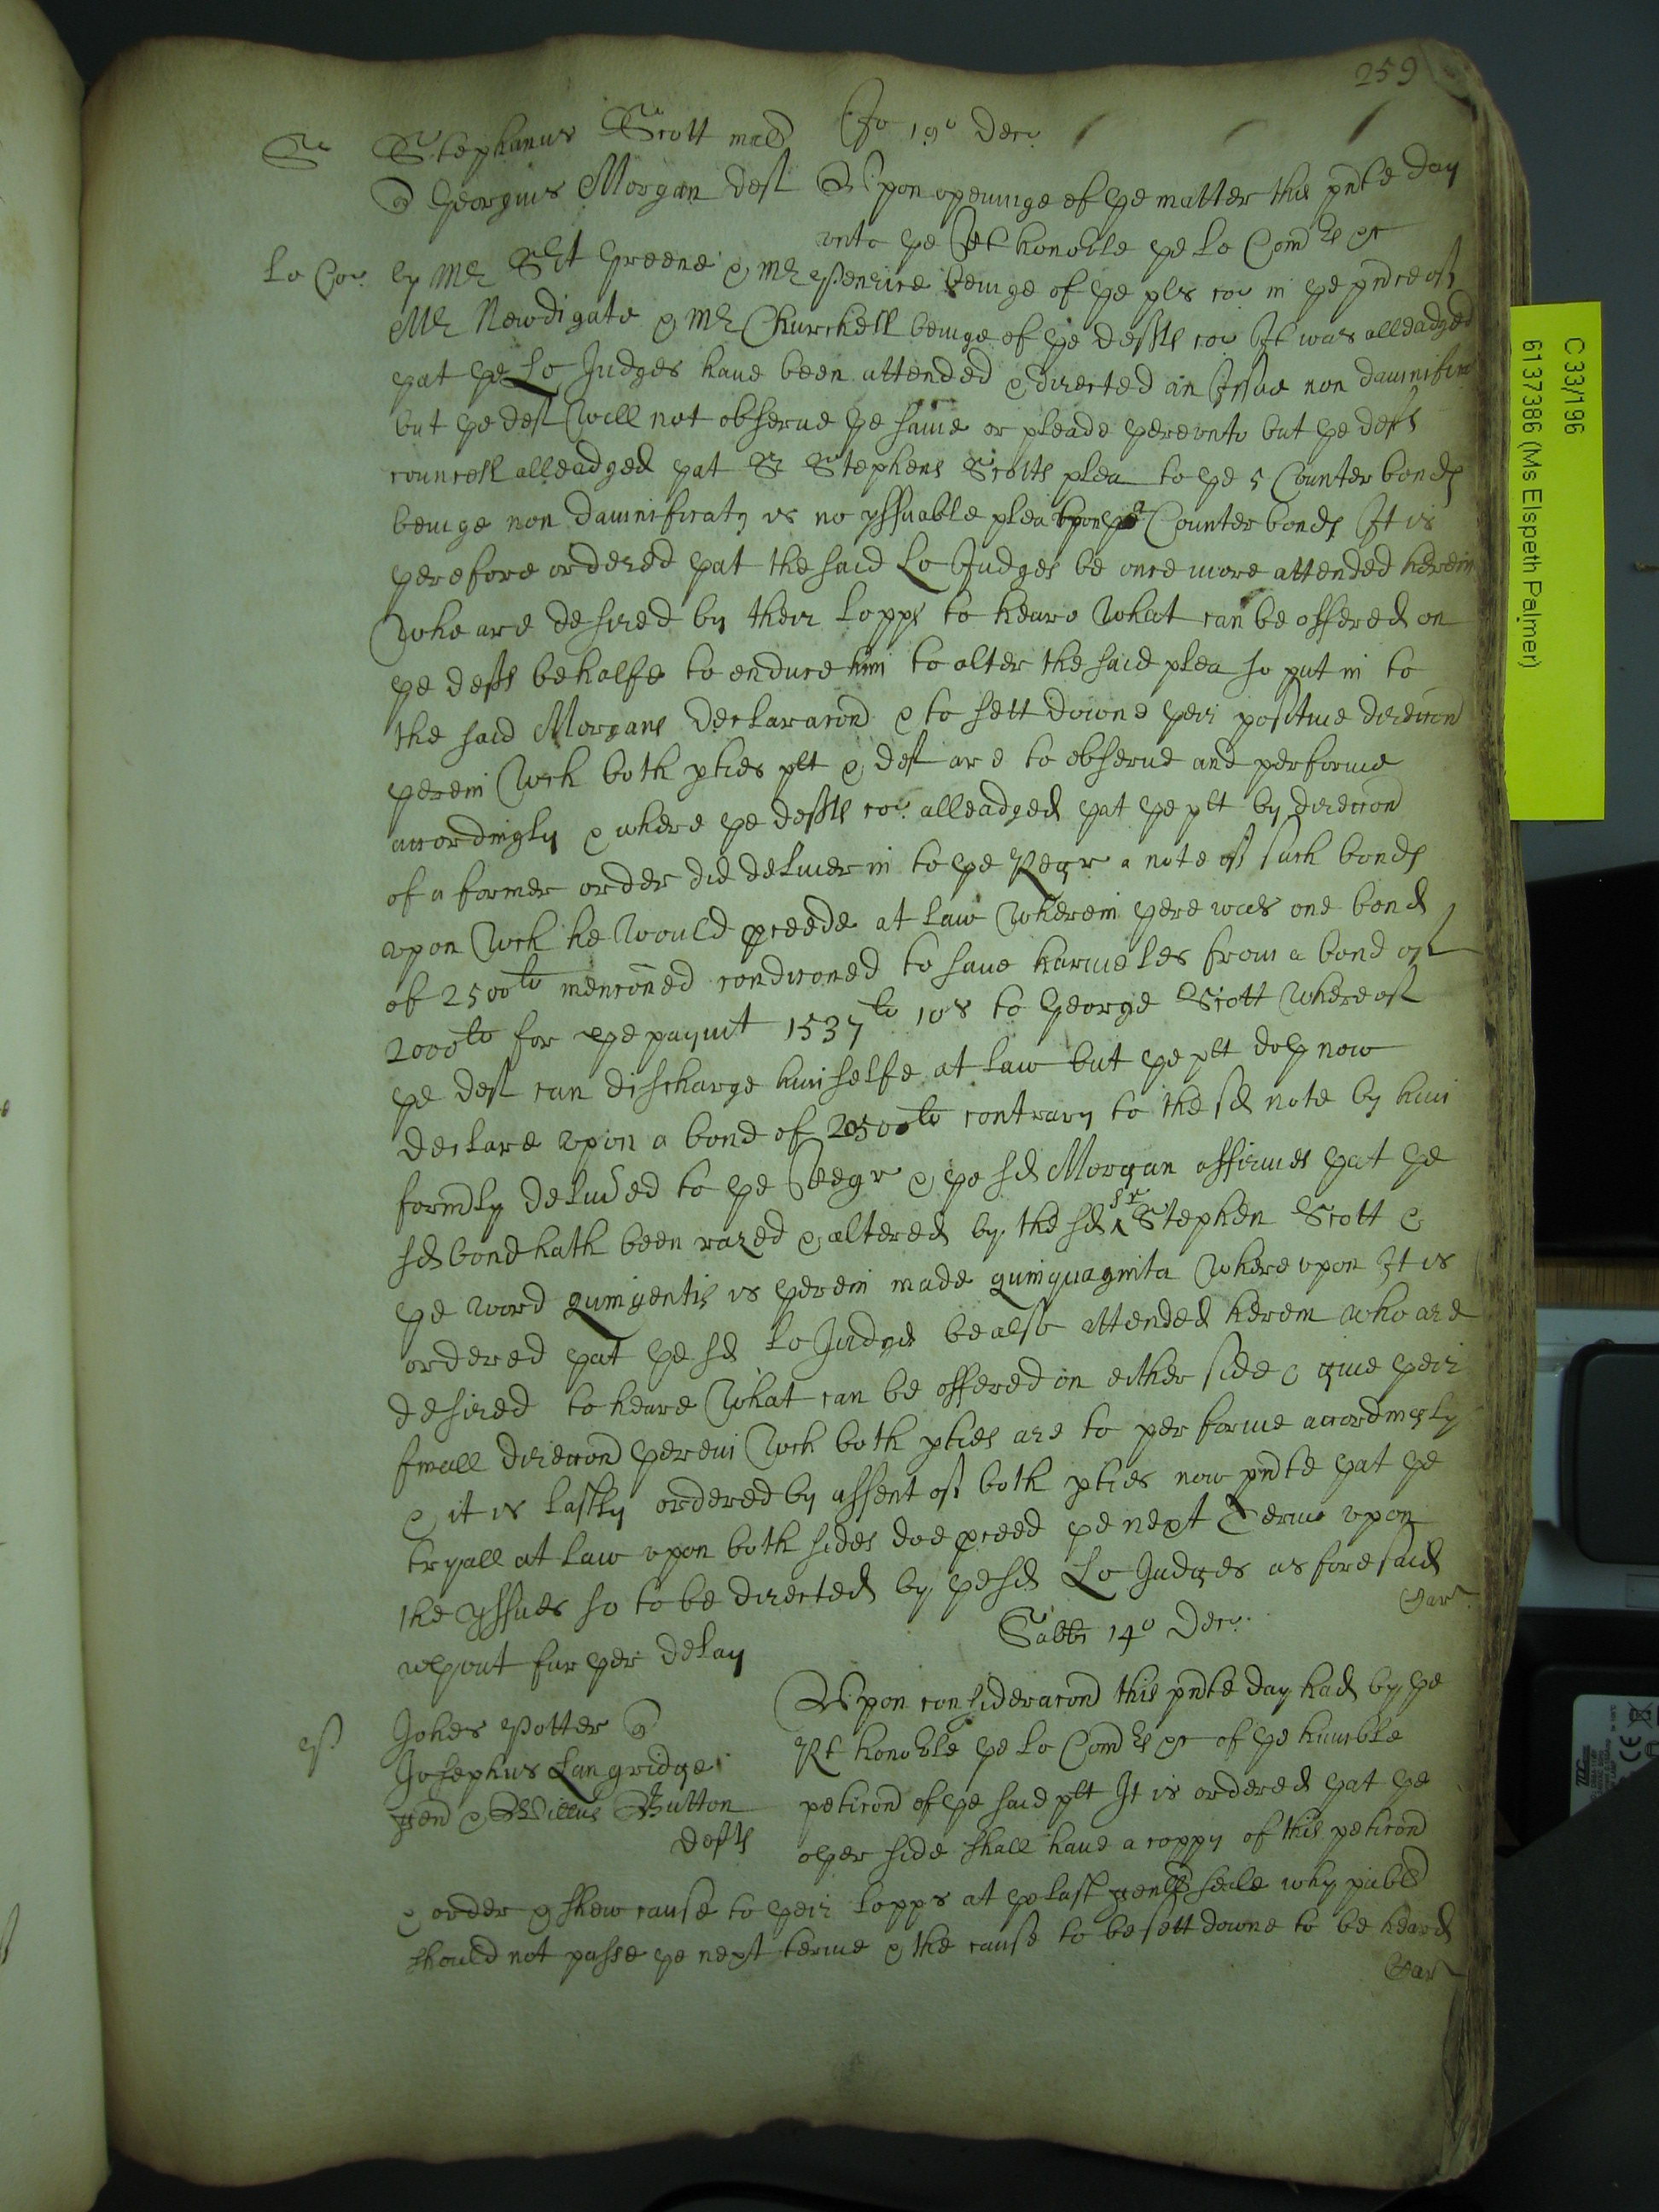 259
S Stephanus Scott mild Jo 19o Decr
a Georgius Morgan deft Vpon openinge of ye matter this pnte day
vnto ye Rt honoble ye Lo Comrs &c
Lo Co: by Mr Sert Greene & Mr Penrice beinge of ye plts co: in ye pnce of
Mr Newdigate & Mr Churchell beinge of ye defts co: It was alleadged
yat ye Lo Judges haue been attended & directed an Issue non damnificat
but ye deft will not obserue ye same or pleade yerevnto but ye defts
councell alleadged yat Sr Stephens Scotts plea to ye 5 Counter bonds
beinge non damnificatus is no yssuable plea vpon ye Counter bonds It is
yerefore ordered yat the said Lo Judges be once more attended herein
who are desired by their Lopps to heare what can be offered on
ye defts behalfe to enduce him to alter the said plea so put in to
the said Morgans declaracon & to sett downe yeir positiue direccon
yerein wch both pties plt & deft are to obserue and performe
accordingly & where ye defts co: alleadged yat ye plt by direccon
of a former order did deliuer in to ye Regr a note of such bonds
vpon wch he would pceede at law wherein yere was one bond
of 2500lo mencōned condiconed to saue harmeles from a bond of
2000lo for ye paymt 1537lo 10s to George Scott whereof
ye deft can discharge himselfe at law but ye plt doy now
declare vpon a bond of 2050lo contrary to the sd note by him
formdly deliued to ye Regr & ye sd Morgan affirmes yat ye
sd bond hath been razed & altered by the sd Sr Stephen Scott &
ye word quingentis is yerein made quinquaginta wherevpon It is
ordered yat ye sd Lo Judges be also attended herein who are
desired to heare what can be offered on either side & giue yeir
finall direccon yerein wch both pties are to performe accordingly
& it is lastly ordered by assent of both pties now pnte yat ye
tryall at law vpon both sides doe pceed ye next Terme vpon
the yssues so to be directed by ye sd Lo Judges as foresaid
wyout furyer delay
Sabbi 14o Decr
P Johes Potter a
Josephus Langridge
gend & Willus Button
defts
Vpon consideracond this pnte day had by ye
Rt honoble ye Lo Comrs &c of ye humble
peticond of ye said plt It is ordered yat ye
oyer side shall haue a coppy of this peticond
& order & shew cause to yeir Lopps at ye last genll seale why publ
should not passe ye next terme & the cause to be sett downe to be heard
C 33/196
6137386 (Ms Elspeth Palmer)